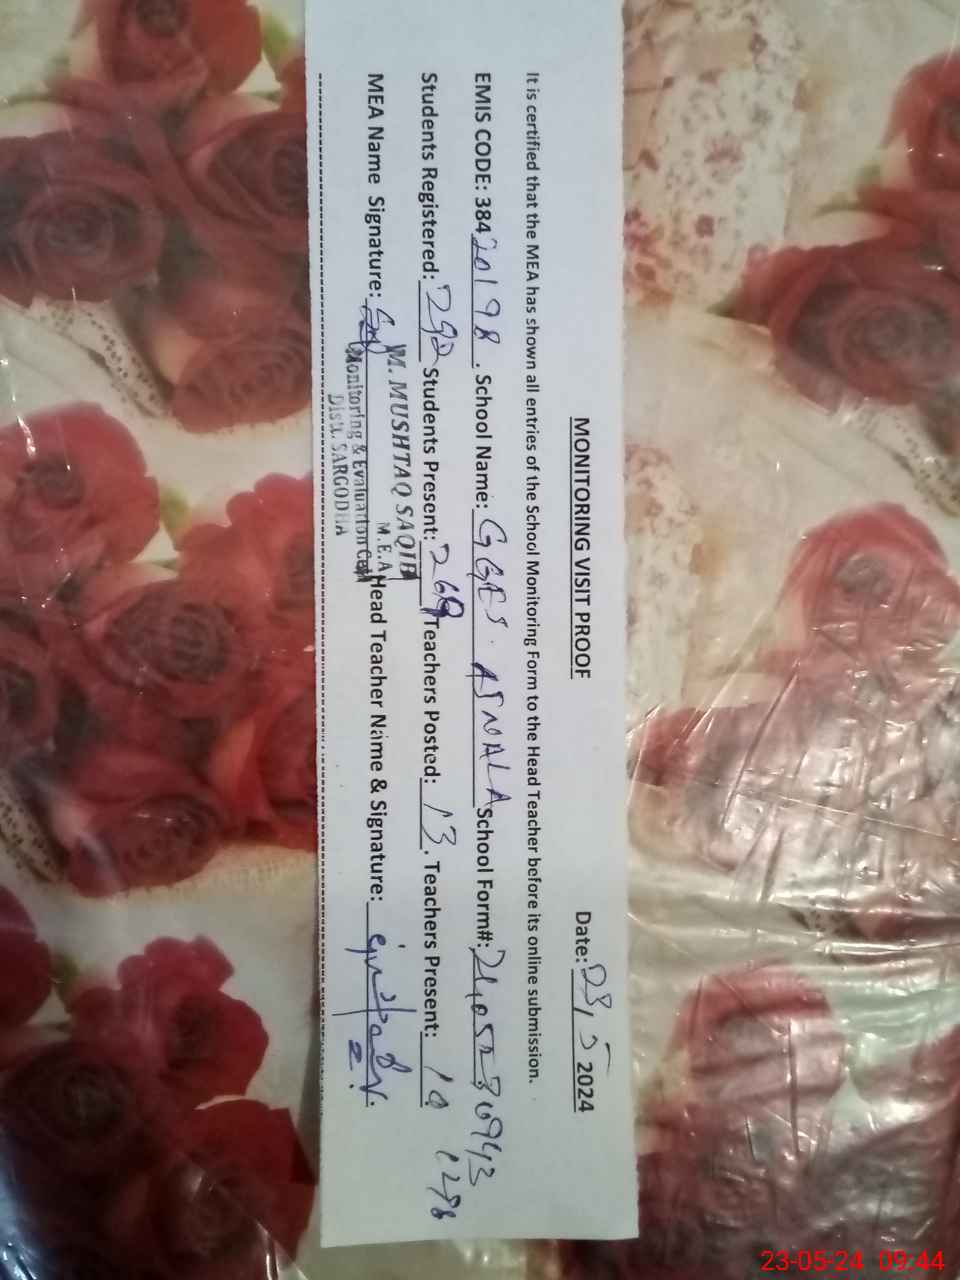 MONITORING VISIT PROOF
Date: 23, 5 2024
It is certified that the MEA has shown all entries of the School Monitoring Form to the Head Teacher before its online submission.
EMIS CODE: 38420198. School Name: GGES. ASNALA School Form#:
Students Registered: 292 Students Present: 269 Teachers Posted: 13. Teachers Present: 10
MEA Name Signature: Head Teacher Name & Signature:
M. MUSHTAQ SAQIB
M.E.A
Monitoring & Evaluation Cell
Distt. SARGODHA
23-05-24 09:44